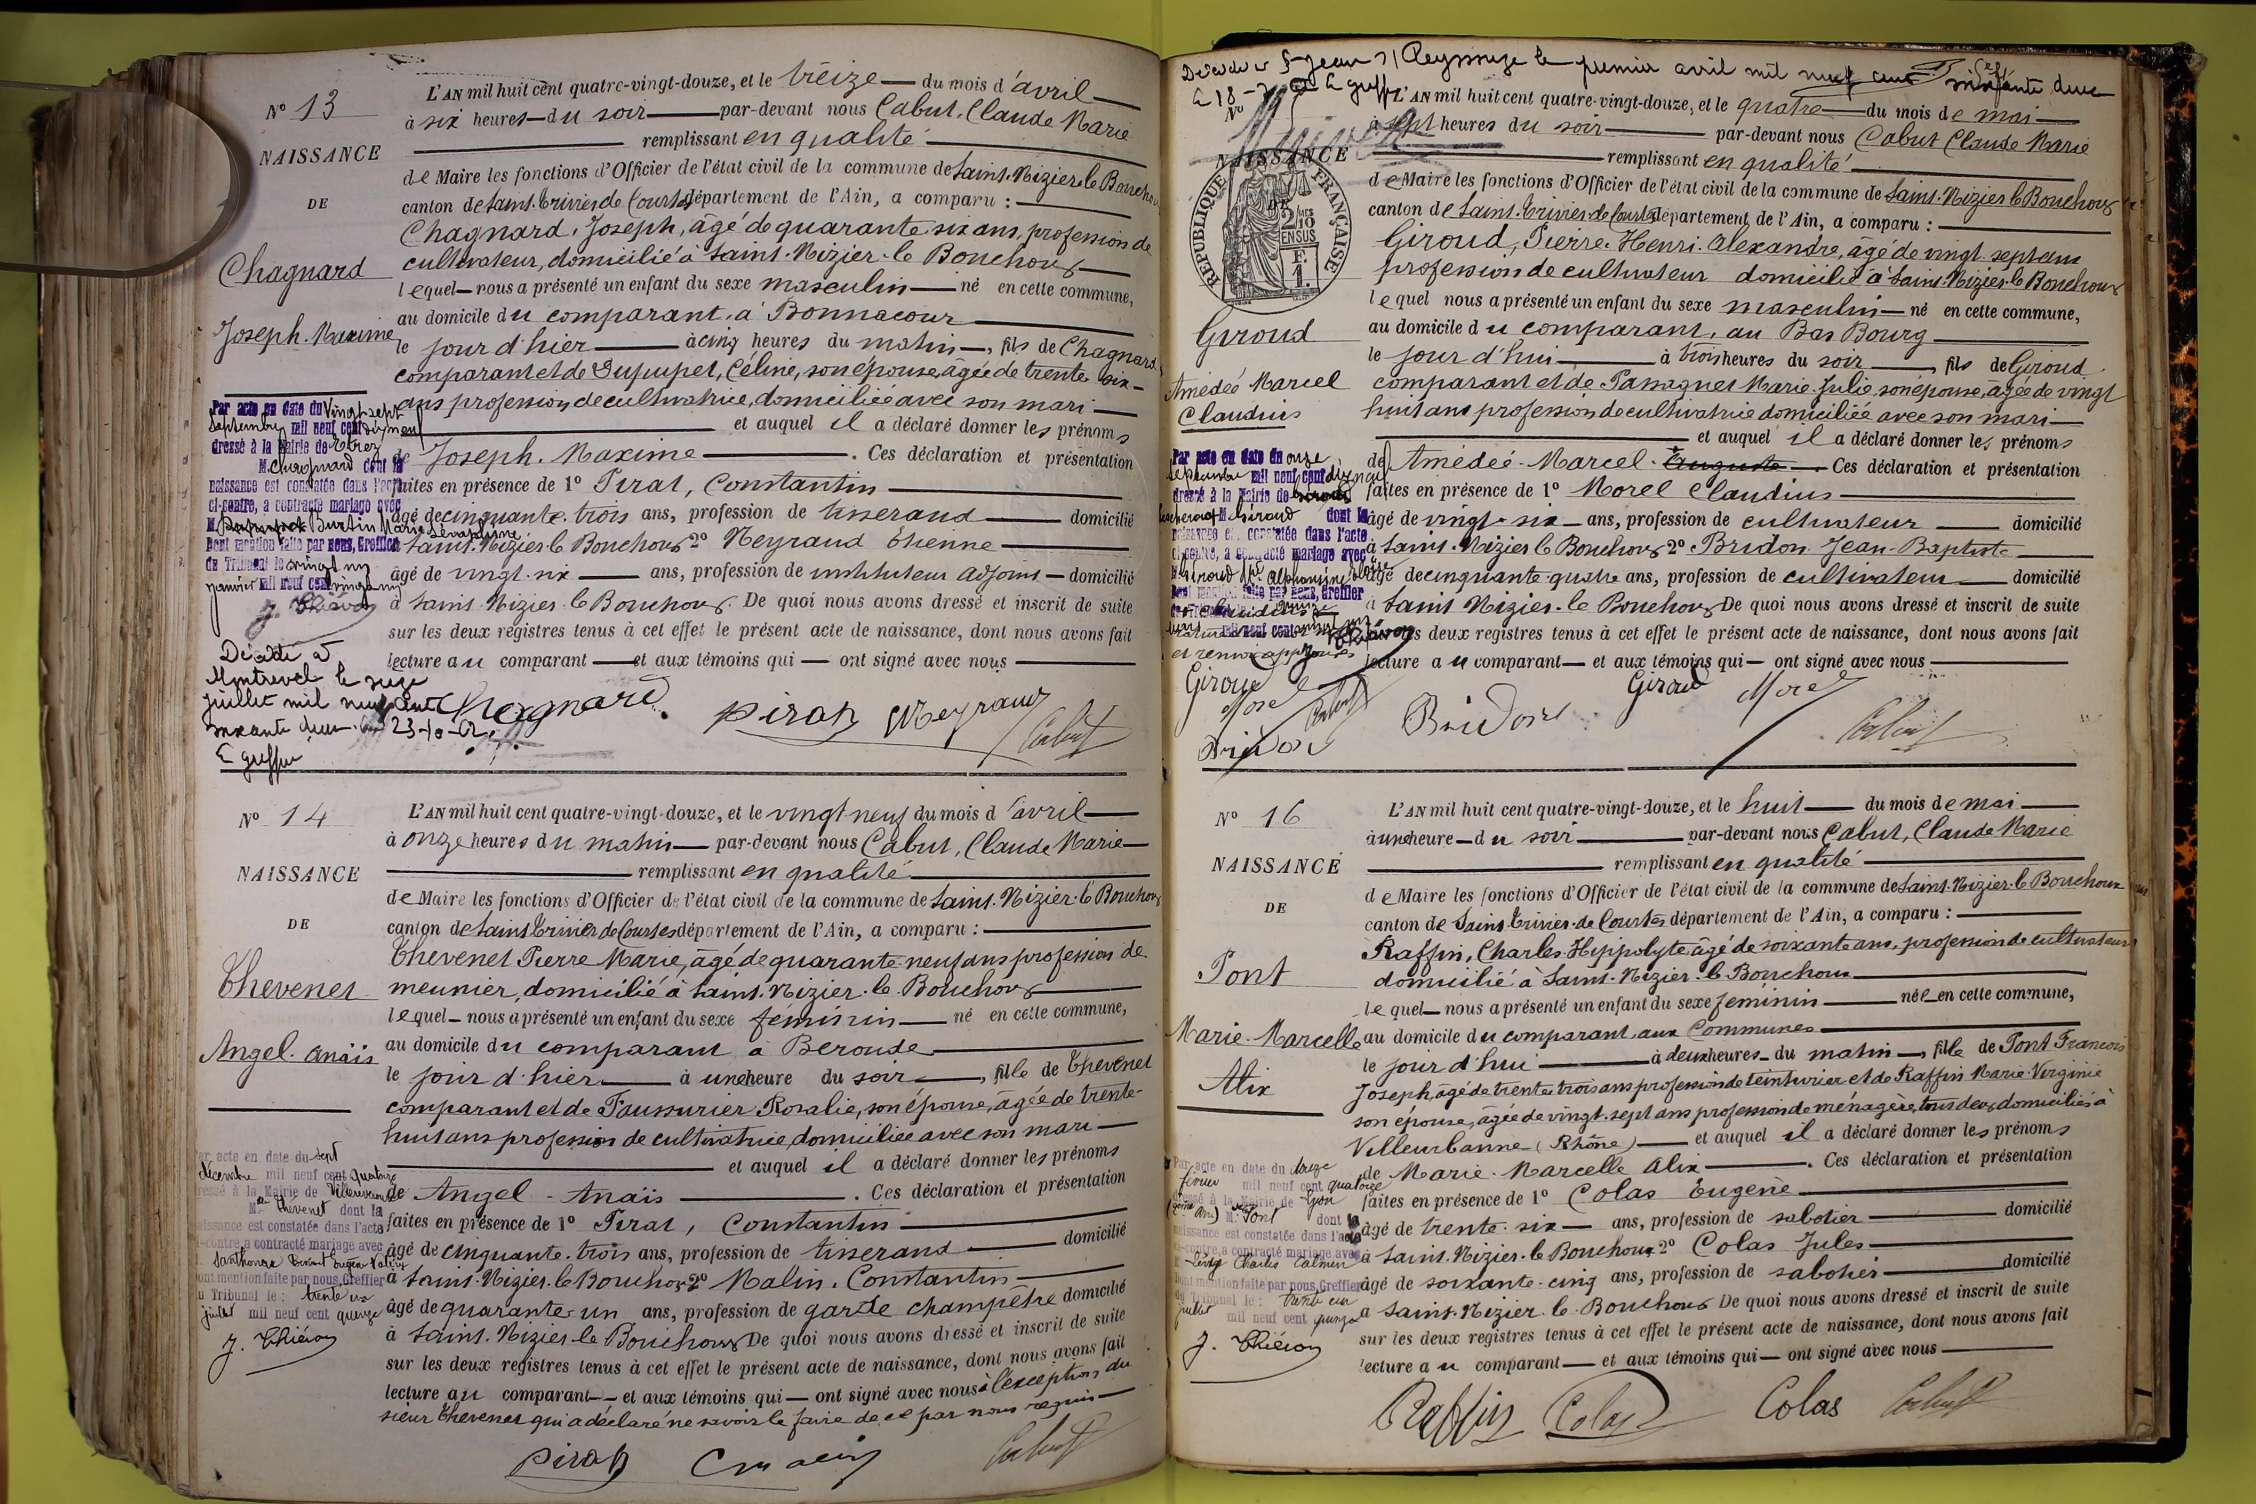 N° 13
NAISSANCE
DE
Chagnard
Joseph. Maxime
L'AN mil huit cent quatre-vingt-douze, et le treize du mois d'avril
à six heures du soir par-devant nous Cabut, Claude Marie
remplissant en qualité
de Maire les fonctions d'Officier de l'état civil de la commune de Saint-Nizier-le Bouchoux
canton de Saint-Trivier de Courtes département de l'Ain, a comparu :
Chagnard, Joseph, âgé de quarante six ans, profession de
cultivateur, domicilié à Saint-Nizier-le Bouchoux
lequel nous a présenté un enfant du sexe masculin né en cette commune,
au domicile du comparant, à Bonnacour
le jour d'hier à cinq heures du matin, fils de Chagnard
comparant et de Dupupet, Céline, son épouse, âgée de trente six
ans profession de cultivatrice, domiciliée avec son mari
et auquel il a déclaré donner les prénoms
de Joseph. Maxime. Ces déclaration et présentation
faites en présence de 1° Pirat, Constantin
âgé de cinquante trois ans, profession de tisserand domicilié
à Saint-Nizier le Bouchoux 2° Neyraud Etienne
âgé de vingt-six ans, profession de instituteur adjoint domicilié
à Saint-Nizier-le Bouchoux. De quoi nous avons dressé et inscrit de suite
sur les deux registres tenus à cet effet le présent acte de naissance, dont nous avons fait
lecture au comparant et aux témoins qui ont signé avec nous
Chagnard Pirat Neyraud Cabut
Par acte en date du Vingt sept
Septembre mil neuf cent dix neuf
dressé à la Mairie de Etrez
M. Chagnard dont la
naissance est constatée dans l'acte
ci-contre, a contracté mariage avec
M. Burtin Marie
Séraphine
Dont mention faite par nous, Greffier
du Tribunal le vingt un
janvier mil neuf cent vingt un
J. Thiéron
Décédé à
Montrevel le seize
juillet mil neuf cent
soixante deux. 23-10-62.
Le greffier
N° 14
NAISSANCE
DE
Thevenet
Angel. Anaïs
L'AN mil huit cent quatre-vingt-douze, et le vingt neuf du mois d'avril
à onze heures du matin par-devant nous Cabut, Claude Marie
remplissant en qualité
de Maire les fonctions d'Officier de l'état civil de la commune de Saint-Nizier-le Bouchoux
canton de Saint Trivier de Courtes département de l'Ain, a comparu :
Thevenet Pierre Marie, âgé de quarante neuf ans profession de
meunier, domicilié à Saint-Nizier-le Bouchoux
lequel nous a présenté un enfant du sexe féminin né en cette commune,
au domicile du comparant à Beroude
le jour d'hier à une heure du soir, fille de Thevenet
comparant et de Faussurier Rosalie, son épouse, âgée de trente
huit ans profession de cultivatrice, domiciliée avec son mari
et auquel il a déclaré donner les prénoms
de Angel - Anaïs. Ces déclaration et présentation
faites en présence de 1° Pirat, Constantin
âgé de cinquante trois ans, profession de tisserand domicilié
à Saint-Nizier-le Bouchoux 2° Malin. Constantin
âgé de quarante un ans, profession de garde champêtre domicilié
à Saint-Nizier-le Bouchoux De quoi nous avons dressé et inscrit de suite
sur les deux registres tenus à cet effet le présent acte de naissance, dont nous avons fait
lecture au comparant et aux témoins qui ont signé avec nous à l'exception du
sieur Thevenet qui a déclaré ne savoir le faire de ce par nous requis
Pirat C Malin Cabut
Par acte en date du sept
décembre mil neuf cent quatorze
dressé à la Mairie de Villereversure
M. Thevenet dont la
naissance est constatée dans l'acte
ci-contre, a contracté mariage avec
Dont mention faite par nous, Greffier
du Tribunal le : trente un
juillet mil neuf cent quinze
J. Thiéron
Décédé à St Jean s/ Reyssouze le premier avril mil neuf cent soixante deux
Le 18-7 Le Greffier
N° 15
NAISSANCE
DE
RÉPUBLIQUE FRANÇAISE
Giroud
Amédée Marcel
Claudius
L'AN mil huit cent quatre-vingt-douze, et le quatre du mois de mai
à sept heures du soir par-devant nous Cabut Claude Marie
remplissant en qualité
de Maire les fonctions d'Officier de l'état civil de la commune de Saint-Nizier le Bouchoux
canton de Saint-Trivier-de Courtes département de l'Ain, a comparu :
Giroud, Pierre-Henri-Alexandre, âgé de vingt-sept ans
profession de cultivateur domicilié à Saint-Nizier-le Bouchoux
lequel nous a présenté un enfant du sexe masculin né en cette commune,
au domicile du comparant, au Bas Bourg
le jour d'hui à trois heures du soir, fils de Giroud
comparant et de Passagnet Marie-Julie, son épouse, âgée de vingt
huit ans profession de cultivatrice domiciliée avec son mari
et auquel il a déclaré donner les prénoms
de Amédée-Marcel-Auguste. Ces déclaration et présentation
faites en présence de 1° Morel Claudius
âgé de vingt-six ans, profession de cultivateur domicilié
à Saint-Nizier le Bouchoux 2° Bridon Jean-Baptiste
âgé de cinquante-quatre ans, profession de cultivateur domicilié
à Saint Nizier-le Bouchoux De quoi nous avons dressé et inscrit de suite
sur les deux registres tenus à cet effet le présent acte de naissance, dont nous avons fait
lecture au comparant et aux témoins qui ont signé avec nous
Bridon Giroud Morel Cabut
Par acte en date du onze
septembre mil neuf cent dix neuf
dressé à la Mairie de
M. Giroud dont la
naissance est constatée dans l'acte
ci-contre, a contracté mariage avec
Dont mention faite par nous, Greffier
et renvoi approuvés
Giroud
Morel Cabut
Bridon
N° 16
NAISSANCE
DE
Pont
Marie-Marcelle
Alix
L'AN mil huit cent quatre-vingt-douze, et le huit du mois de mai
à une heure du soir par-devant nous Cabut, Claude Marie
remplissant en qualité
de Maire les fonctions d'Officier de l'état civil de la commune de Saint-Nizier-le Bouchoux
canton de Saint-Trivier-de Courtes département de l'Ain, a comparu :
Raffin, Charles-Hyppolyte âgé de soixante ans, profession de cultivateur
domicilié à Saint-Nizier-le Bouchoux
lequel nous a présenté un enfant du sexe féminin née en cette commune,
au domicile du comparant, aux Communes
le jour d'hui à deux heures du matin, fille de Pont Francois
Joseph, âgé de trente trois ans profession de teinturier et de Raffin Marie-Virginie
son épouse, âgée de vingt-sept ans profession de ménagère, tous deux domiciliés à
Villeurbanne (Rhône) et auquel il a déclaré donner les prénoms
de Marie-Marcelle Alix. Ces déclaration et présentation
faites en présence de 1° Colas Eugène
âgé de trente-six ans, profession de sabotier domicilié
à Saint-Nizier-le Bouchoux 2° Colas Jules
âgé de soixante-cinq ans, profession de sabotier domicilié
à Saint-Nizier-le-Bouchoux De quoi nous avons dressé et inscrit de suite
sur les deux registres tenus à cet effet le présent acte de naissance, dont nous avons fait
lecture au comparant et aux témoins qui ont signé avec nous
Raffin Colas Colas Cabut
Par acte en date du treize
février mil neuf cent quatorze
dressé à la Mairie de Lyon
M. Pont dont la
naissance est constatée dans l'acte
ci-contre, a contracté mariage avec
Lévy Charles Calmen
Dont mention faite par nous, Greffier
du Tribunal le : trente un
juillet mil neuf cent quinze
J. Thiéron